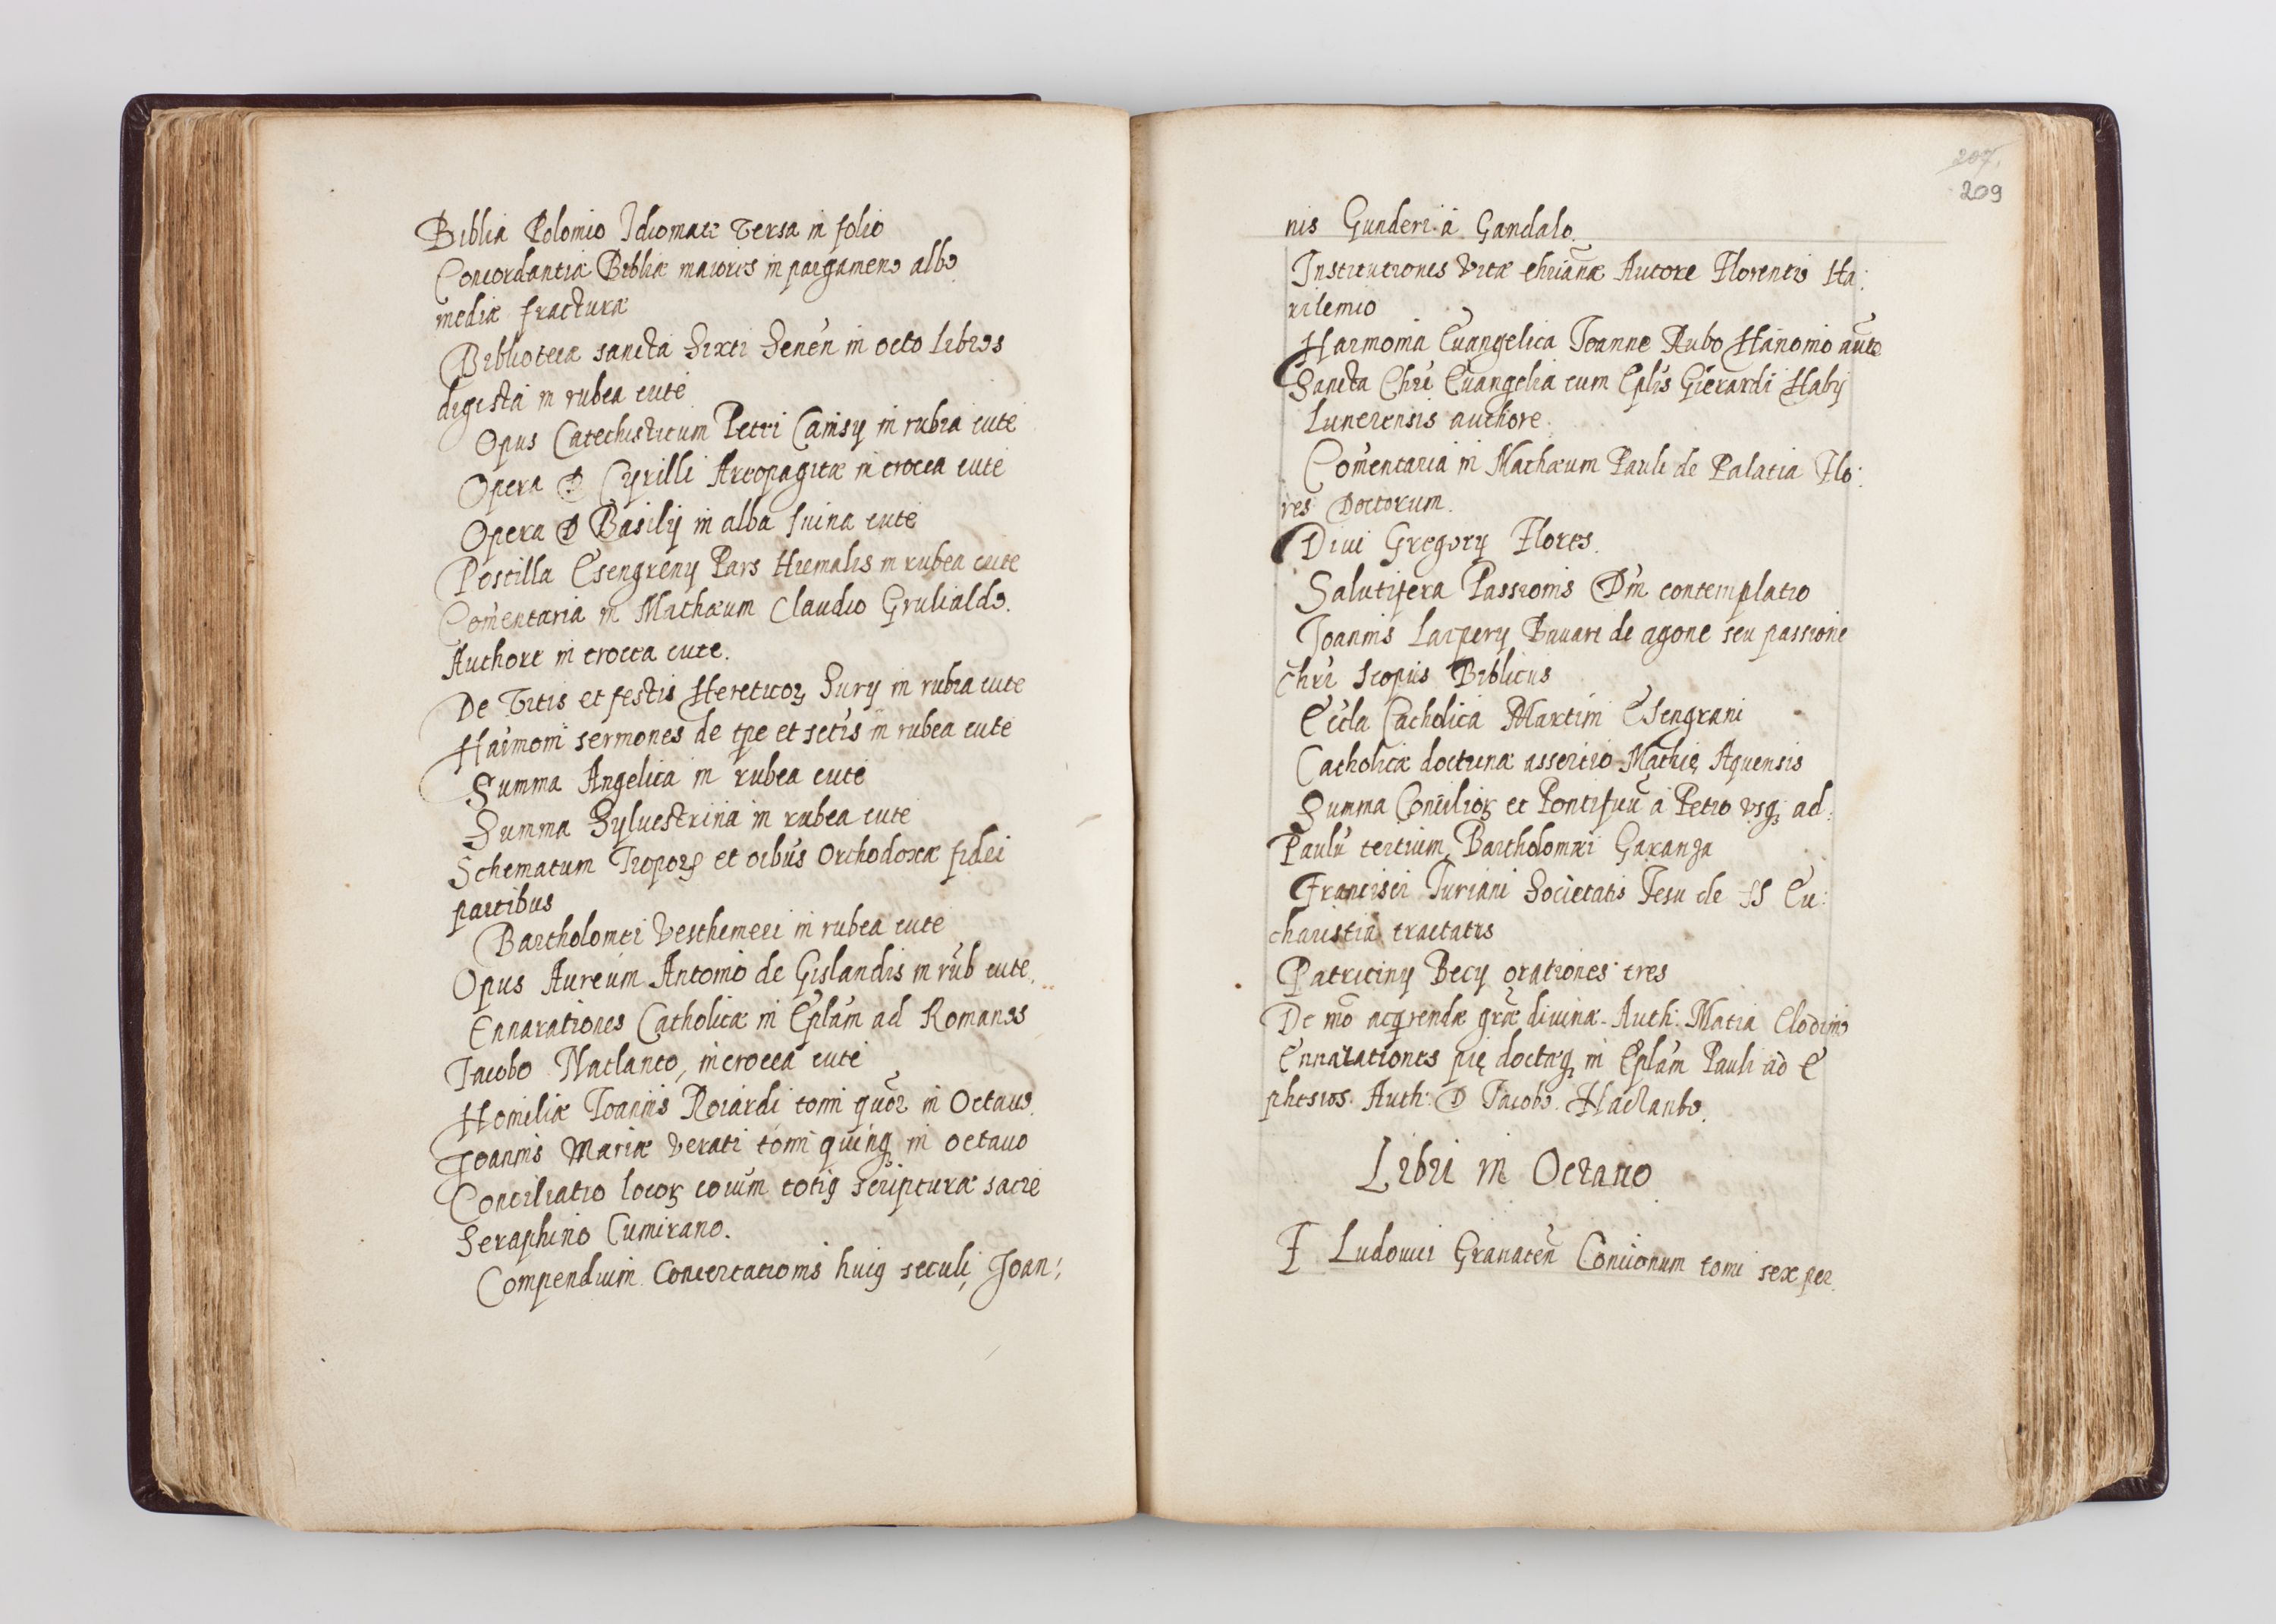 Biblia Polonio Idiomate versa in folio
Concordantiæ Bibliæ maioris in pargameno albo
mediæ fracturæ
Biblioteca sancta Sixti Senen in octo libros
digesta in rubea cute
Opus Catechisticum Petri Canisy in rubea cute
Opera D Cyrilli Areopagitæ in crocea cute
Opera D Basilij in alba suina cute
Postilla Esengreny Pars Hiemalis in rubea cute
Comentaria in Mathæum Claudio Grulialdo.
Authore in crocea cute.
De Vitis et festis Hereticoꝝ Sury in rubea cute
Haimoni sermones de tpe et sctis in rubea cute
Summa Angelica in rubea cute
Summa Sylvestrina in rubea cute
Schematum Tropoꝝ et oibus Orthodoxæ fidei
partibus
Bartholomei Vesthemeri in rubea cute
Opus Aureum Antonio de Gislandis in rub cute.
Ennarationes Catholicæ in Eplam ad Romanos
Jacobo Naclanto, in crocea cute
Homiliæ Joannis Roiardi tomi quor in Octavo.
Joannis Mariæ Verati tomi quinqꝫ in octavo
Conciliatio locoꝝ coium totiꝰ scripturæ sacre
Seraphino Cumirano.
Compendium Concertationis huiꝰ seculi, Joan:
207.
209
nis Gunderi à Gandalo.
Institutiones Vitæ chrianæ Autore Florentio Ha:
rilemio
Harmonia Evangelica Joanne Rubo Hanonio aute
Sancta Chri Evangelia cum Eplis Gierardi Habij
Lunerensis authore.
Comentaria in Mathæum Pauli de Palatia Flo:
res Doctorum.
Divi Gregory Flores.
Salutifera Passionis Dni contemplatio
Joannis Laipery Bavari de agone seu passione
Chri Scopus Biblicus
Eccla Catholica Martini Esengrani
Catholicæ doctrinæ assertio Mathię Aquensis
Summa Concilioꝝ et Pontificũ a Petro usqꝫ ad
Paulũ tertium, Bartholomæi Garanza
Francisci Turiani Societatis Jesu de SS Eu:
charistia tractatus
Patriciny Becy orationes tres
De mo acqrendæ græ divinæ. Auth: Matia Clodino
Ennarationes pię doctæqꝫ in Eplam Pauli ad E
phesios. Auth: D Jacobo. Naclanto.
Libri in Octauo
F Ludovici Granaten Concionum tomi sex per